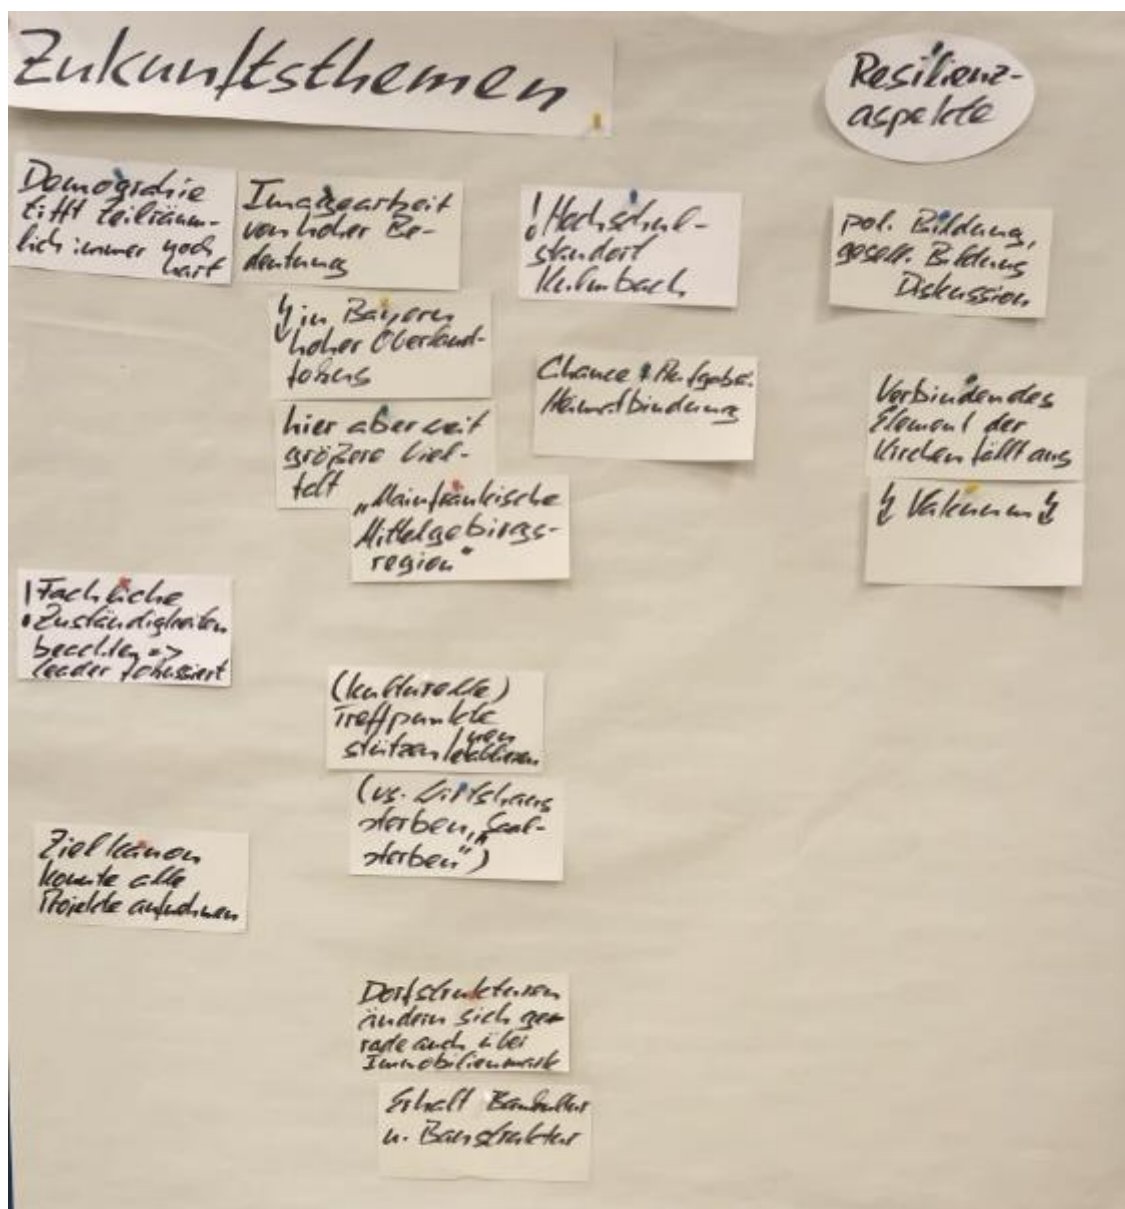 Zukunftsthemen
Resilienz-
aspekte
Demograhie
tifft teilräum-
lich immer noch
hart
Imagearbeit
von hoher Be-
deutung
in Bayern
hoher Oberland-
fokus
hier aber weit
größere Viel-
falt
„Mainfränkische
Mittelgebirgs-
region"
! Hochschul-
standort
Kulmbach
Chance + Aufgabe:
Heimatbindung
pol. Bildung,
gesell. Bildung
Diskussion
Verbindendes
Element der
Kirchen fällt aus
Vakuum
! Fachliche
Zuständigkeiten
beachten =>
Leader fokussiert
(kulturelle)
Treffpunkte
stützen / neu
etablieren
(vs. Wirtshaus
sterben, „Saal-
sterben")
Zielkanon
konnte alle
Projekte aufnehmen
Dorfstrukturen
ändern sich ge-
rade auch über
Immobilienmarkt
Erhalt Baukultur
u. Baustruktur